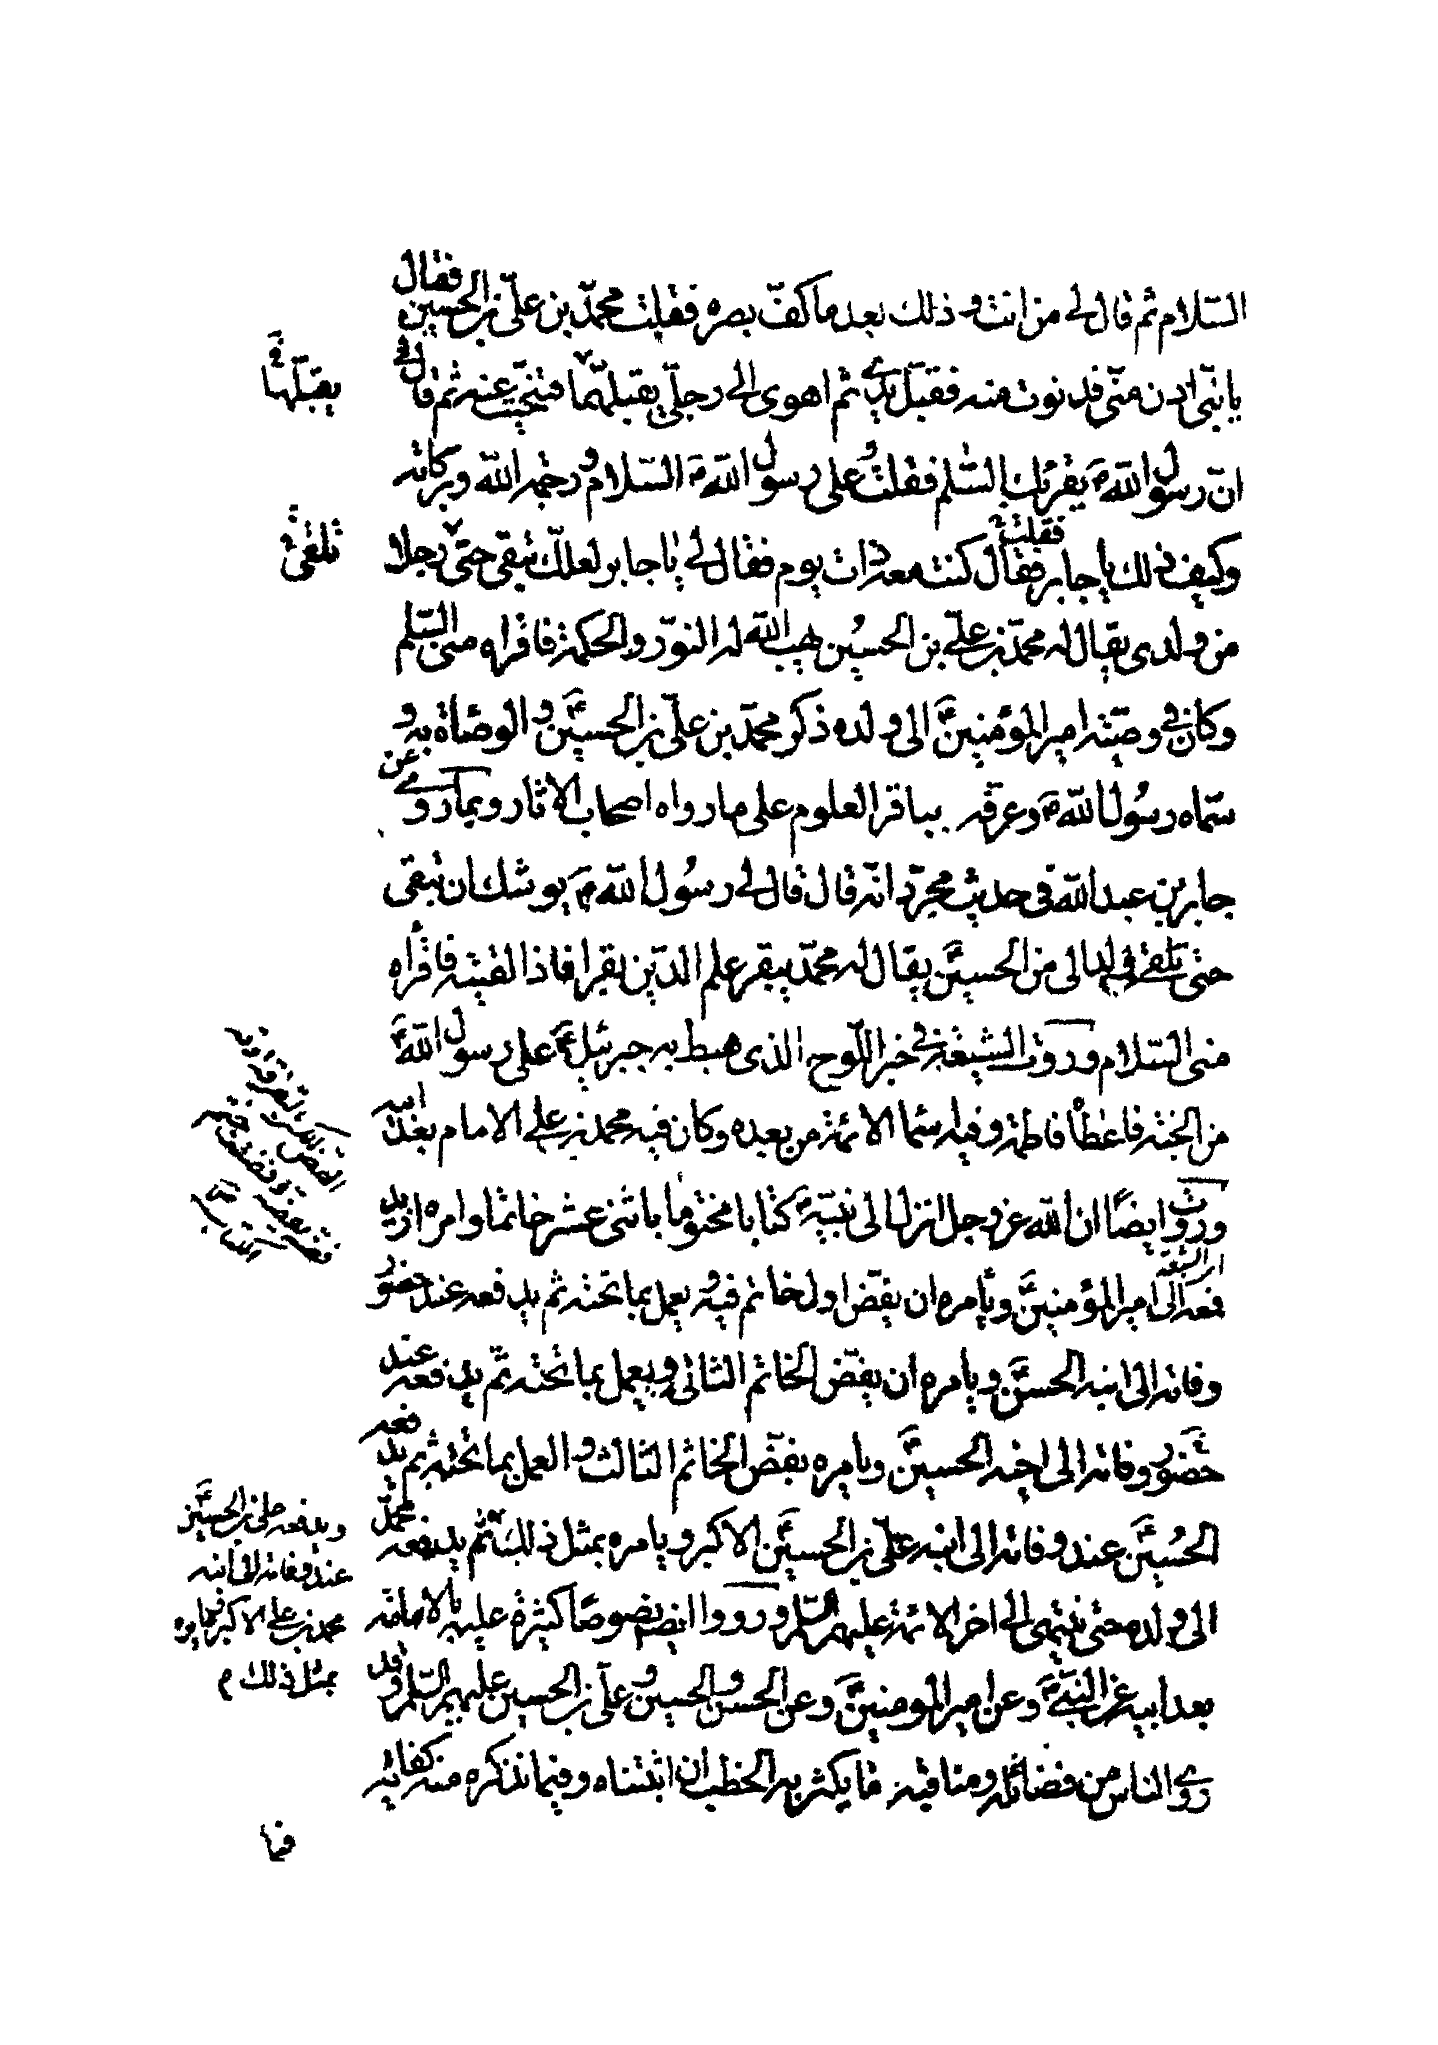 السّلام ثم قال لي من انت وذلك بعد ما كفّ بصره فقلت محمّد بن علّي بن الحسين فقال
يا بنّي ادن منّي فدنوت منه فقبّل يدي ثم اهوى الى رجلّي يقبلهما فتنحّيت عنه ثم قال لي
انّ رسول الله ص يقرئك السّلم فقلت وعلى رسول الله ص السّلام ورحمة الله وبركاته
وكيف ذلك يا جابر فقال كنت معه ذات يوم فقال لي يا جابر لعلك تبقى حتّى رجلا
فقلت
من ولدى يقال له محمّد بن علي بن الحسين يهب الله له النوّر والحكمة فاقراه منى السّلم
وكان في وصيّة امير المؤمنين ع الى ولده ذكر محمّد بن علّي بن الحسين ع والوصاة به و
سمّاه رسول الله ص وعرّفه بباقر العلوم على ما رواه اصحاب الاثار وبما روي عن
جابر بن عبد الله في حديث مجرّد انّه قال قال لي رسول الله ص يوشك ان تبقى
حتى تلقى ولدا لى من الحسين ع يقال له محمّد يبقر علم الدّين بقرا فاذا لقيته فاقراه
منى السّلام وروت الشيعة في خبر اللّوح الذى هبط به جبرئيل ع على رسول الله ص
من الجنّة فاعطاه فاطمة وفيه اسما الائمّة من بعده وكان فيه محمد بن علي الامام بعد ابيه
وروت ايضًا ان الله عز وجل انزل الى نبيّه ص كتابا مختوما باثنى عشر خاتما وامره ان يد
فعه الى امير المؤمنين ع ويأمره ان يفضّ اول خاتم فيه ويعمل بما تحته ثم يدفعه عند حضور
وفاته الى ابنه الحسن ع ويامره ان يفضّ الخاتم الثانى ويعمل بما تحته ثمّ يدفعه عند
حضور وفاته الى اخيه الحسين ع ويامره بفضّ الخاتم الثالث والعمل بما تحته ثم يدفعه
الحُسين ع عند وفاته الى ابنه علّي بن الحسين ع الاكبر ويامره بمثل ذلك ثم يدفعه محمّد
الى ولده حتى ينتهى الى اخر الائمّة عليهم السّلم ورووا ايضا نصوصًا كثيرة عليه بالامامة
بعد ابيه عن النبّي ص وعن امير المومنين ع وعن الحسن والحسين وعلّي بن الحسين عليهم السّلم وقد
روي الناس من فضائله ومناقبه ما يكثر به الخطب ان اثبتناه وفيما نذكره منه كفاية
يقبّلها
تلقى
ويدفعه على بن الحسين ع
عند وفاته الى ابنه
محمد بن علي الاكبر ويامره
بمثل ذلك م
فيما